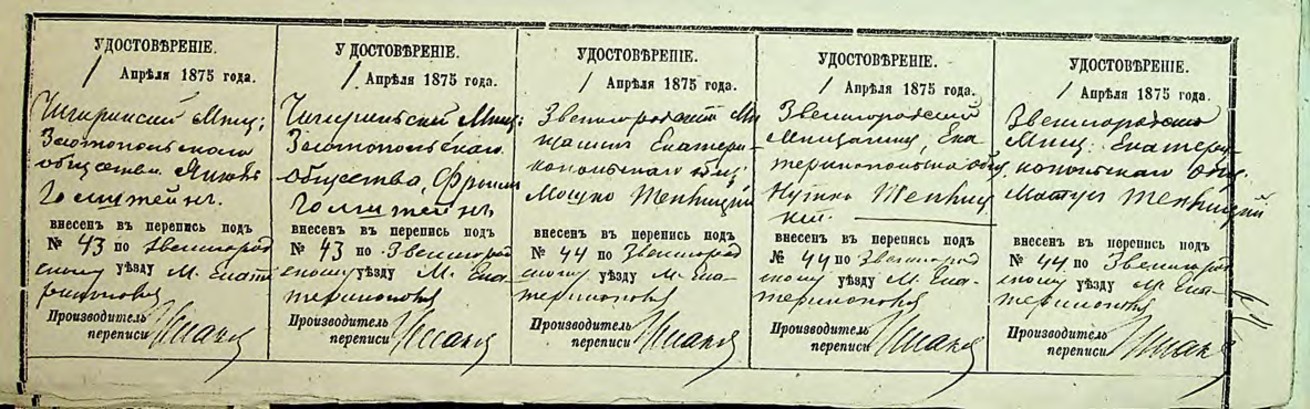 УДОСТОВѢРЕНІЕ.
1 Апрѣля 1875 года.
Чигиринскій Мѣщ:
Златопольскаго
общества Янкель
Голштейнъ.
внесенъ въ перепись подъ
№ 43 по Звенигород
скому уѣзду М. Екате
ринополь
Производитель
переписи
УДОСТОВѢРЕНІЕ.
1 Апрѣля 1875 года.
Чигиринскій Мѣщ:
Златопольскаго
общества, Фроим
Голштейнъ
внесенъ въ перепись подъ
№ 43 по Звенигород
скому уѣзду М. Ека-
теринополь
Производитель
переписи
УДОСТОВѢРЕНІЕ.
1 Апрѣля 1875 года.
Звенигородскій Мѣ
щанинъ Екатери-
нопольскаго общ:
Мошко Теплицкій
внесенъ въ перепись подъ
№ 44 по Звенигород
скому уѣзду М. Ека-
теринополь
Производитель
переписи
УДОСТОВѢРЕНІЕ.
1 Апрѣля 1875 года.
Звенигородскій
Мѣщанинъ, Ека
теринопольскаго общ,
Нутко Теплиц
кій.
внесенъ въ перепись подъ
№ 44 по Звенигород
скому уѣзду М. Ека-
теринополь
Производитель
переписи
УДОСТОВѢРЕНІЕ.
1 Апрѣля 1875 года.
Звенигородскій
Мѣщ: Екатери-
нопольскаго общ.
Матус Теплицкій
внесенъ въ перепись подъ
№ 44 по Звенигород
скому уѣзду М. Ека-
теринополь
Производитель
переписи